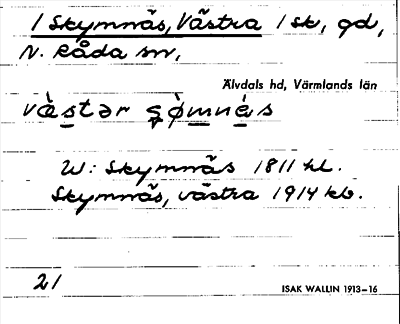 1 Skymnäs, Västra 1 sk, gd,
N. Råda sn,
Älvdals hd, Värmlands län
vä̀stər şø̀mnäs
W: Skymnäs 1811 hl.
Skymnäs, västra 1914 kb.
21
ISAK WALLIN 1913–16